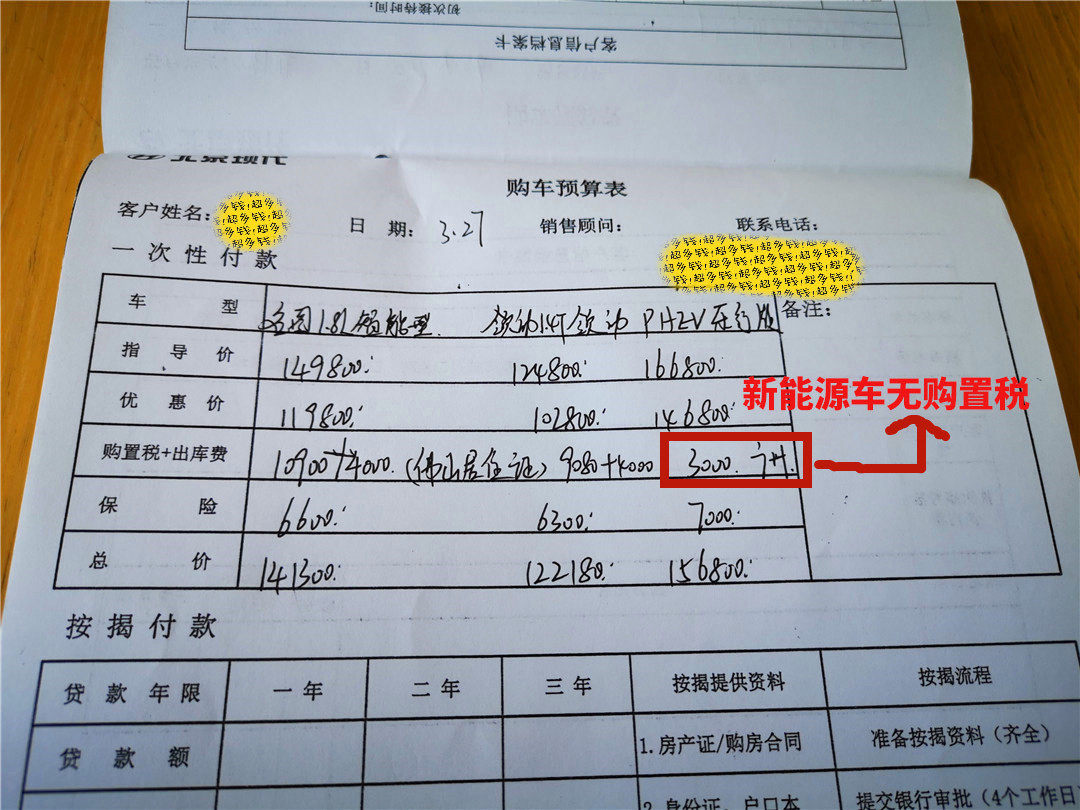 初次接待时间:
客户信息档案卡
北京现代
购车预算表
客户姓名: 日 期: 3.27 销售顾问: 联系电话:
超多钱,超多钱,超多钱
一次性付款
车 型 名图1.8L智能型 领动1.4T 领动 PHEV 备注:
指 导 价 149800 124800 166800
优 惠 价 119800 102800 146800
新能源车无购置税
购置税+出库费 10900+4000 (佛山居住证) 9080+4000 3000
保 险 6600 6300 7000
总 价 141300 122180 156800
按揭付款
贷 款 年 限 一 年 二 年 三 年 按揭提供资料 按揭流程
贷 款 额 1.房产证/购房合同 准备按揭资料(齐全)
2.身份证、户口本 提交银行审批(4个工作日